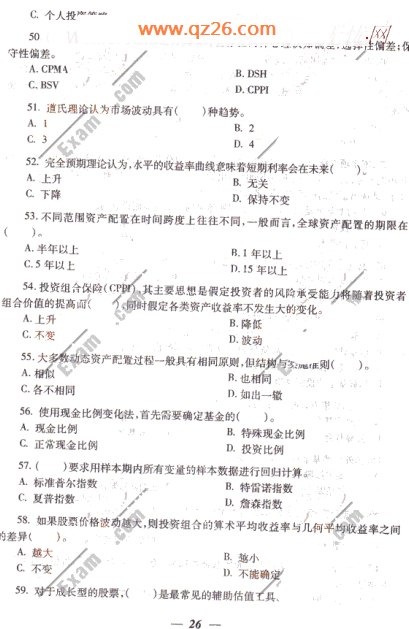 www.qz26.com
C. 个人投资
50
选择性偏差;保
守性偏差。
A. CPMA B. DSH
C. BSV D. CPPI
51. 道氏理论认为市场波动具有( )种趋势。
A. 1 B. 2
C. 3 D. 4
52. 完全预期理论认为,水平的收益率曲线意味着短期利率会在未来( )。
A. 上升 B. 无关
C. 下降 D. 保持不变
53. 不同范围资产配置在时间跨度上往往不同,一般而言,全球资产配置的期限在
( )。
A. 半年以上 B. 1 年以上
C. 5 年以上 D. 15 年以上
54. 投资组合保险(CPPI),其主要思想是假定投资者的风险承受能力将随着投资者
组合价值的提高而( ),同时假定各类资产收益率不发生大的变化。
A. 上升 B. 降低
C. 不变 D. 波动
55. 大多数动态资产配置过程一般具有相同原则,但结构与实施准则( )。
A. 相似 B. 也相同
C. 各不相同 D. 如出一辙
56. 使用现金比例变化法,首先需要确定基金的( )。
A. 现金比例 B. 特殊现金比例
C. 正常现金比例 D. 投资比例
57. ( )要求用样本期内所有变量的样本数据进行回归计算。
A. 标准普尔指数 B. 特雷诺指数
C. 夏普指数 D. 詹森指数
58. 如果股票价格波动越大,则投资组合的算术平均收益率与几何平均收益率之间
的差异( )。
A. 越大 B. 越小
C. 不变 D. 不能确定
59. 对于成长型的股票,( )是最常见的辅助估值工具。
— 26 —